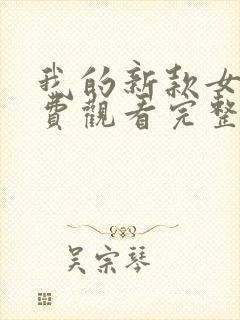 我的新款女
費觀看完整
吳宗琴